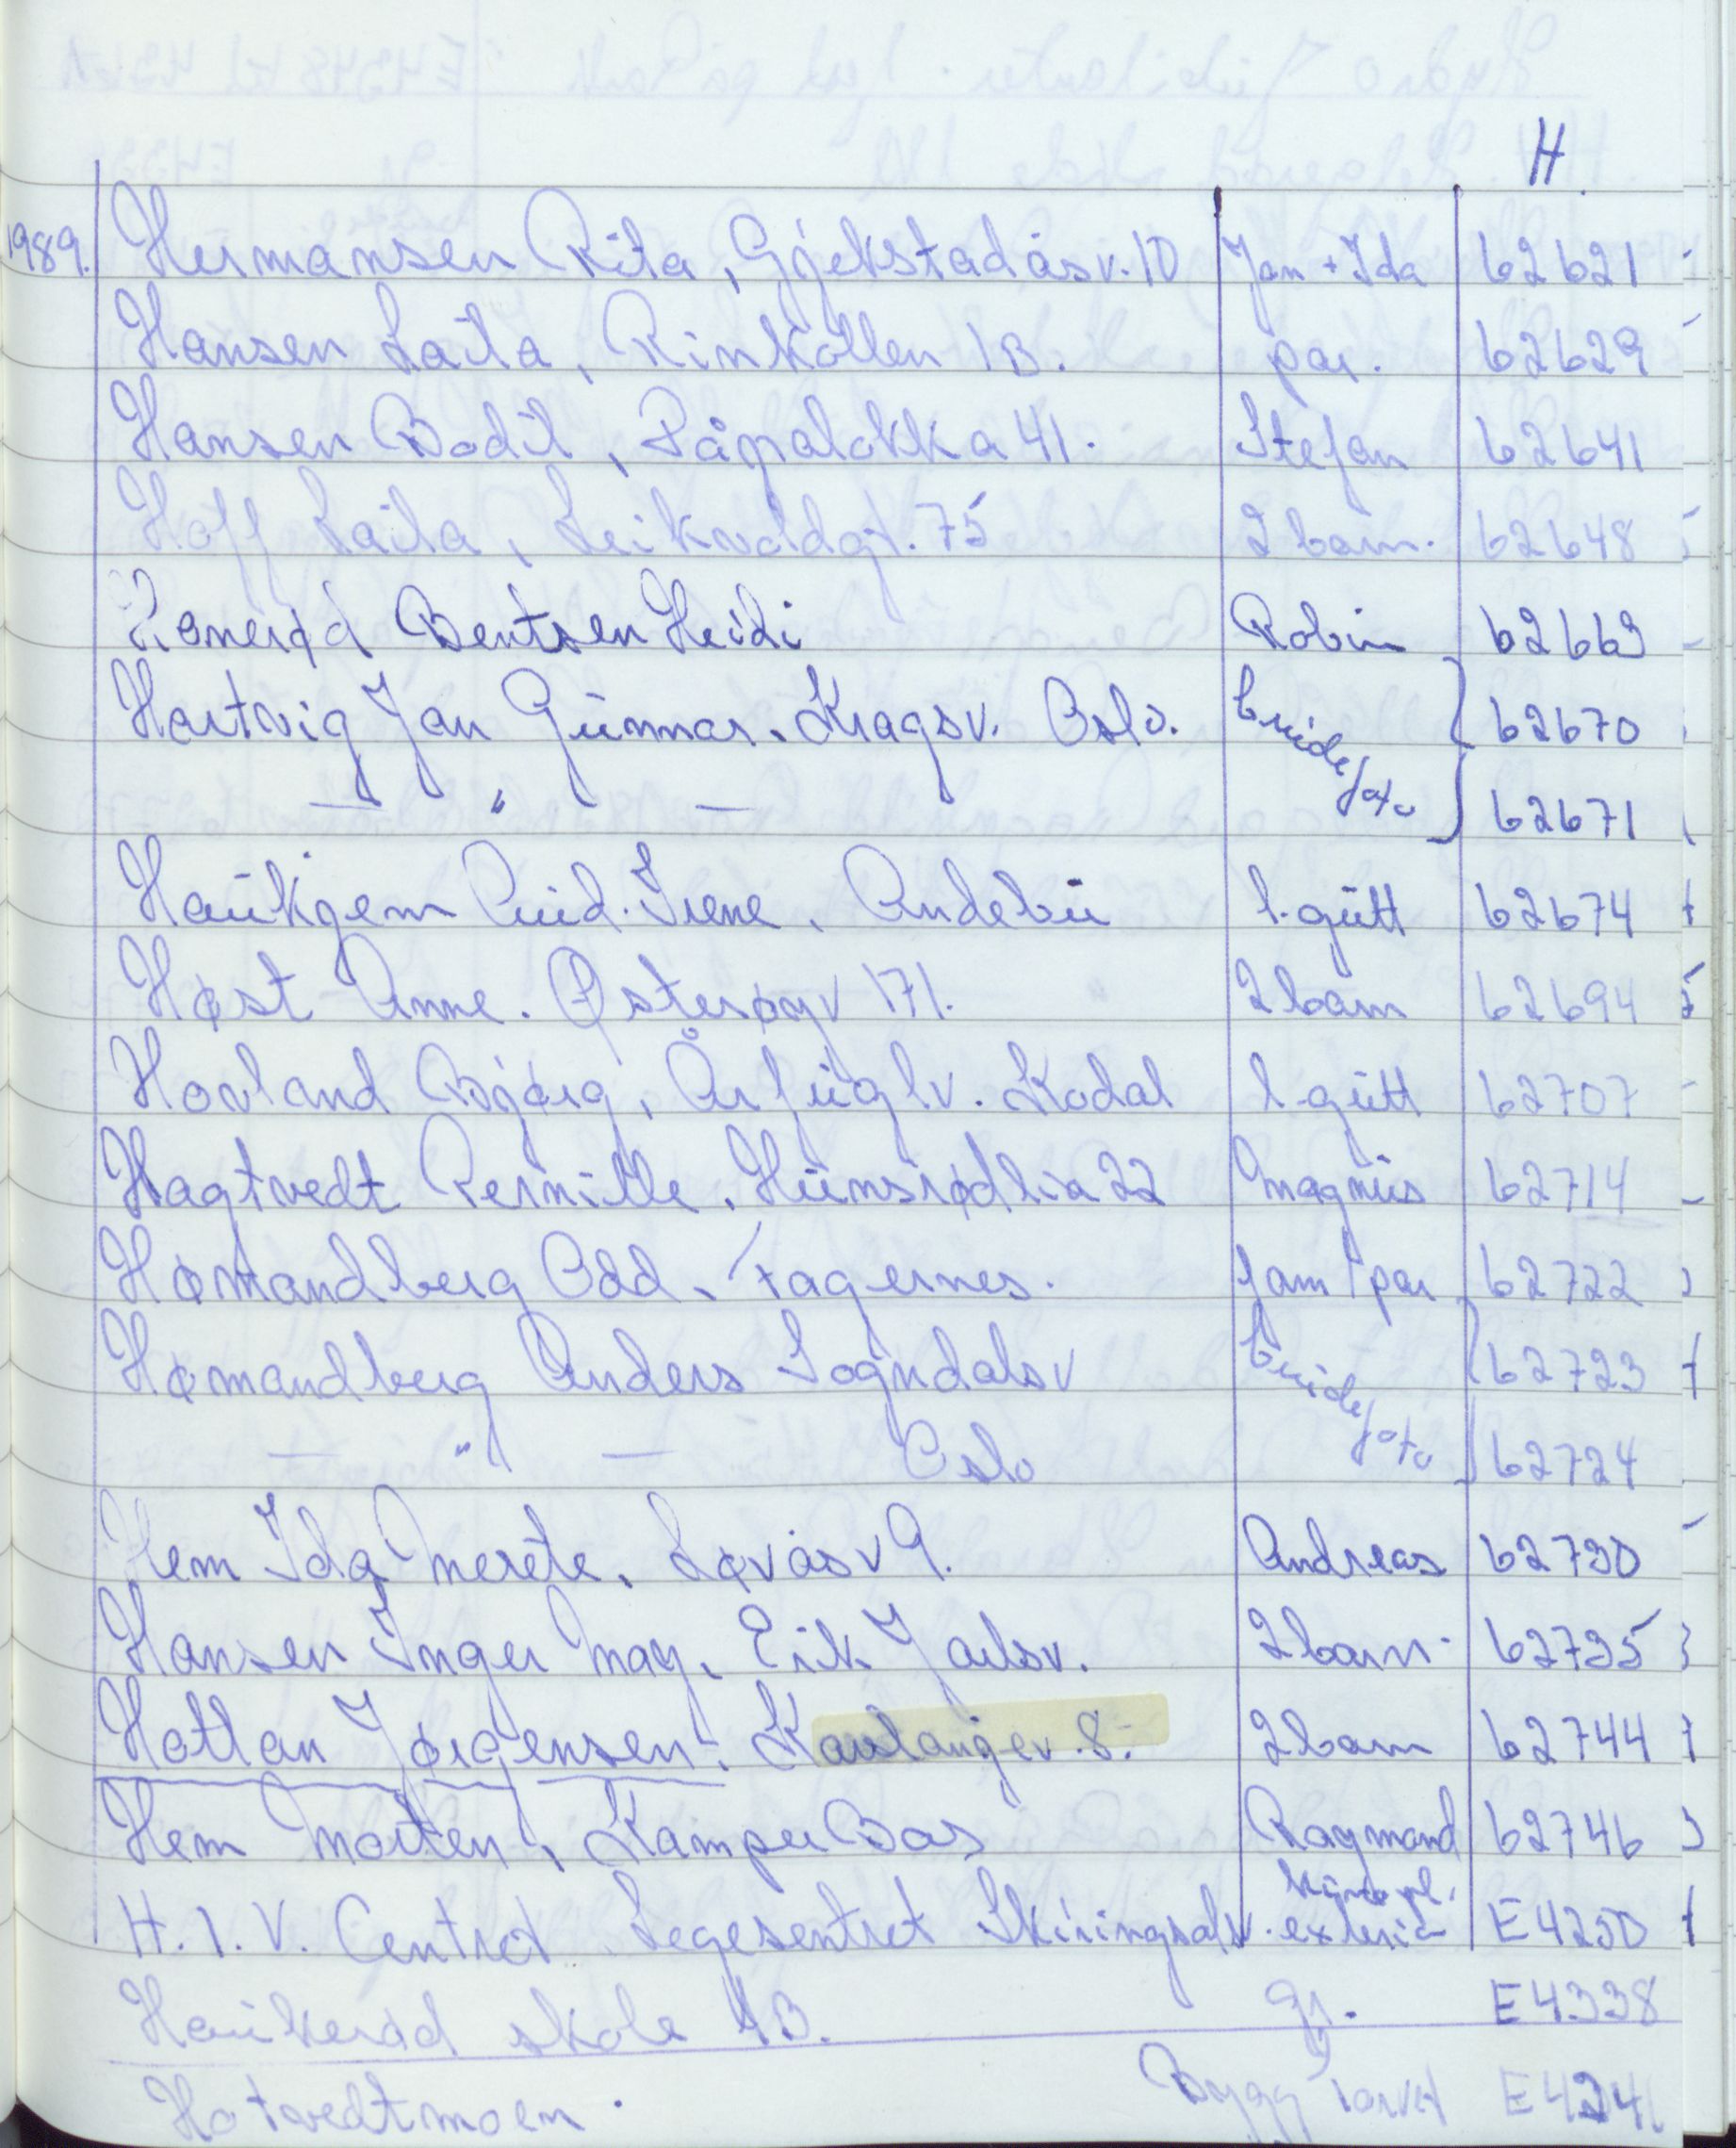 H.
1989. Hermansen Rita, Gjekstadåsv. 10 Jan + Ida 62621
Hansen Laila, Rinkollen 1B. par. 62629
Hansen Bodil, Påpaløkka 41. Stefan 62641
Hoff Laila, Leikvollgt. 75 2 barn. 62648
Bentsen Heidi Robin 62663
Hartvig Jan Gunnar. Kragsv. Oslo. brudefoto 62670
— " — 62671
Irene, Andebu l.gutt 62674
Høst Anne. Østerøyv 171. 2 barn 62694
Hovland Bjørg, Årfuglv. Kodal l.gutt 62707
Hagtvedt Pernille, Hunsrødlia 22 Magnus 62714
Hømandberg Odd, Fagernes. fam/par 62722
Hømandberg Anders Sogndalsv brudefoto 62723
— " — Oslo 62724
Hem Ida Merete, Løvåsv 9. Andreas 62730
Hansen Inger May, Eirik Jarlsv. 2 barn. 62735
Hotlan Jørgensen. Kaulangev. 8. 2 barn 62744
Hem Morten, Kamper Bas Raymond 62746
H.I.V. Centret Legesentret Skiringsalv. exteriør E4250
Haukerød skole 1B. gr. E4338
Hotvedtmoen. Bygg